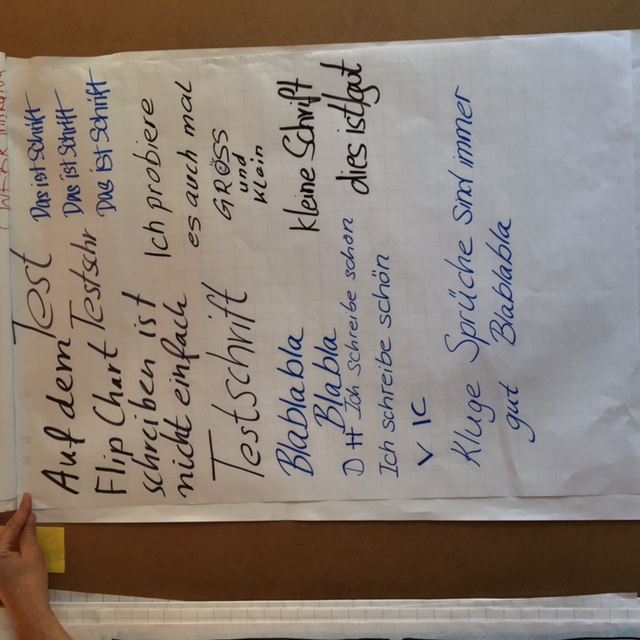 Test
Das ist Schrift
Das ist Schrift
Das ist Schrift
Auf dem
Flip Chart Testschr
schreiben ist
nicht einfach
Ich probiere
es auch mal
GRÖSS
und
klein
Testschrift
kleine Schrift
dies ist gut
Blablabla
Blabla
D H Ich Schreibe schön
Ich schreibe schön
V IC
Kluge Sprüche sind immer
gut Blablabla